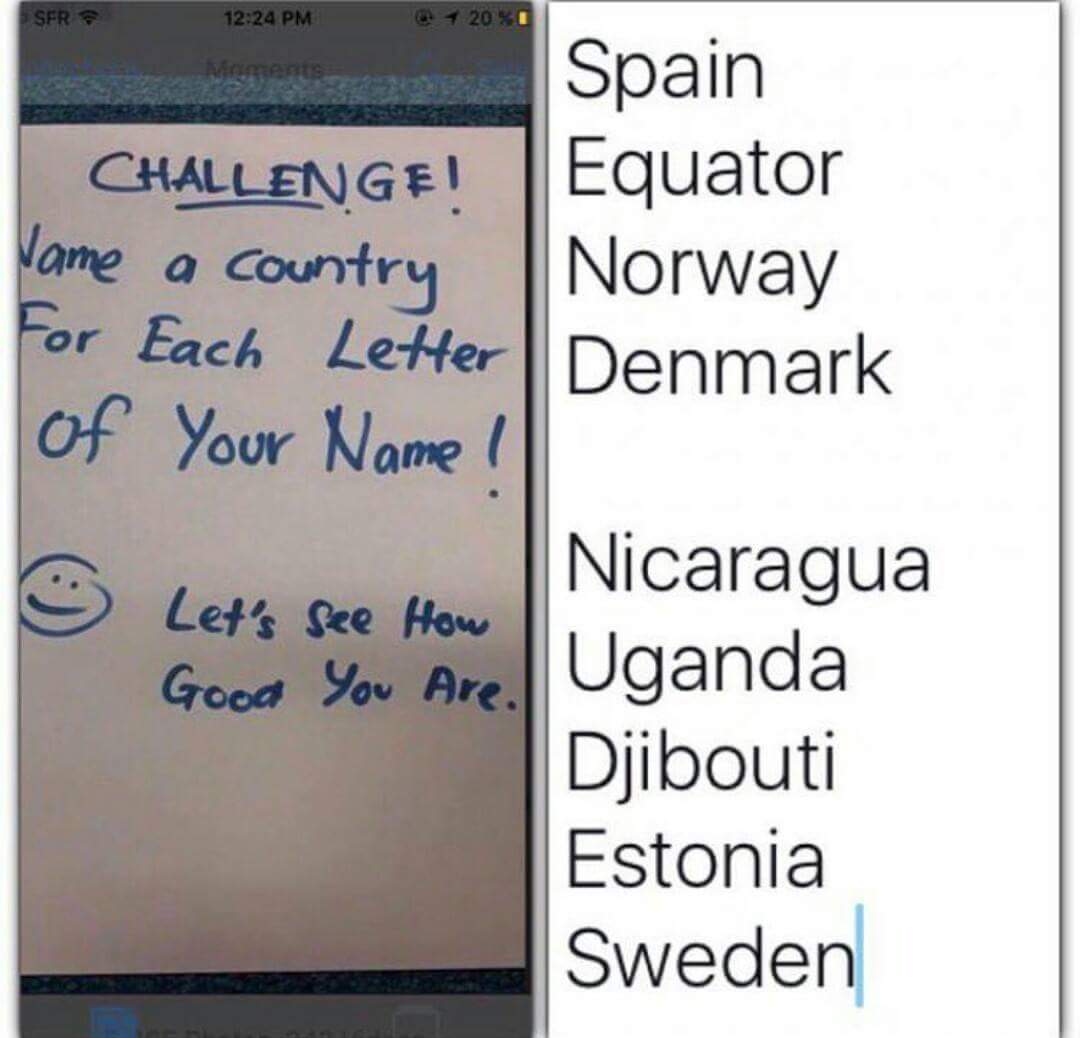 SFR 12:24 PM 20 %
Moments
CHALLENGE!
Name a country
For Each Letter
Of Your Name!
Let's See How
Good You Are.
Spain
Equator
Norway
Denmark
Nicaragua
Uganda
Djibouti
Estonia
Sweden